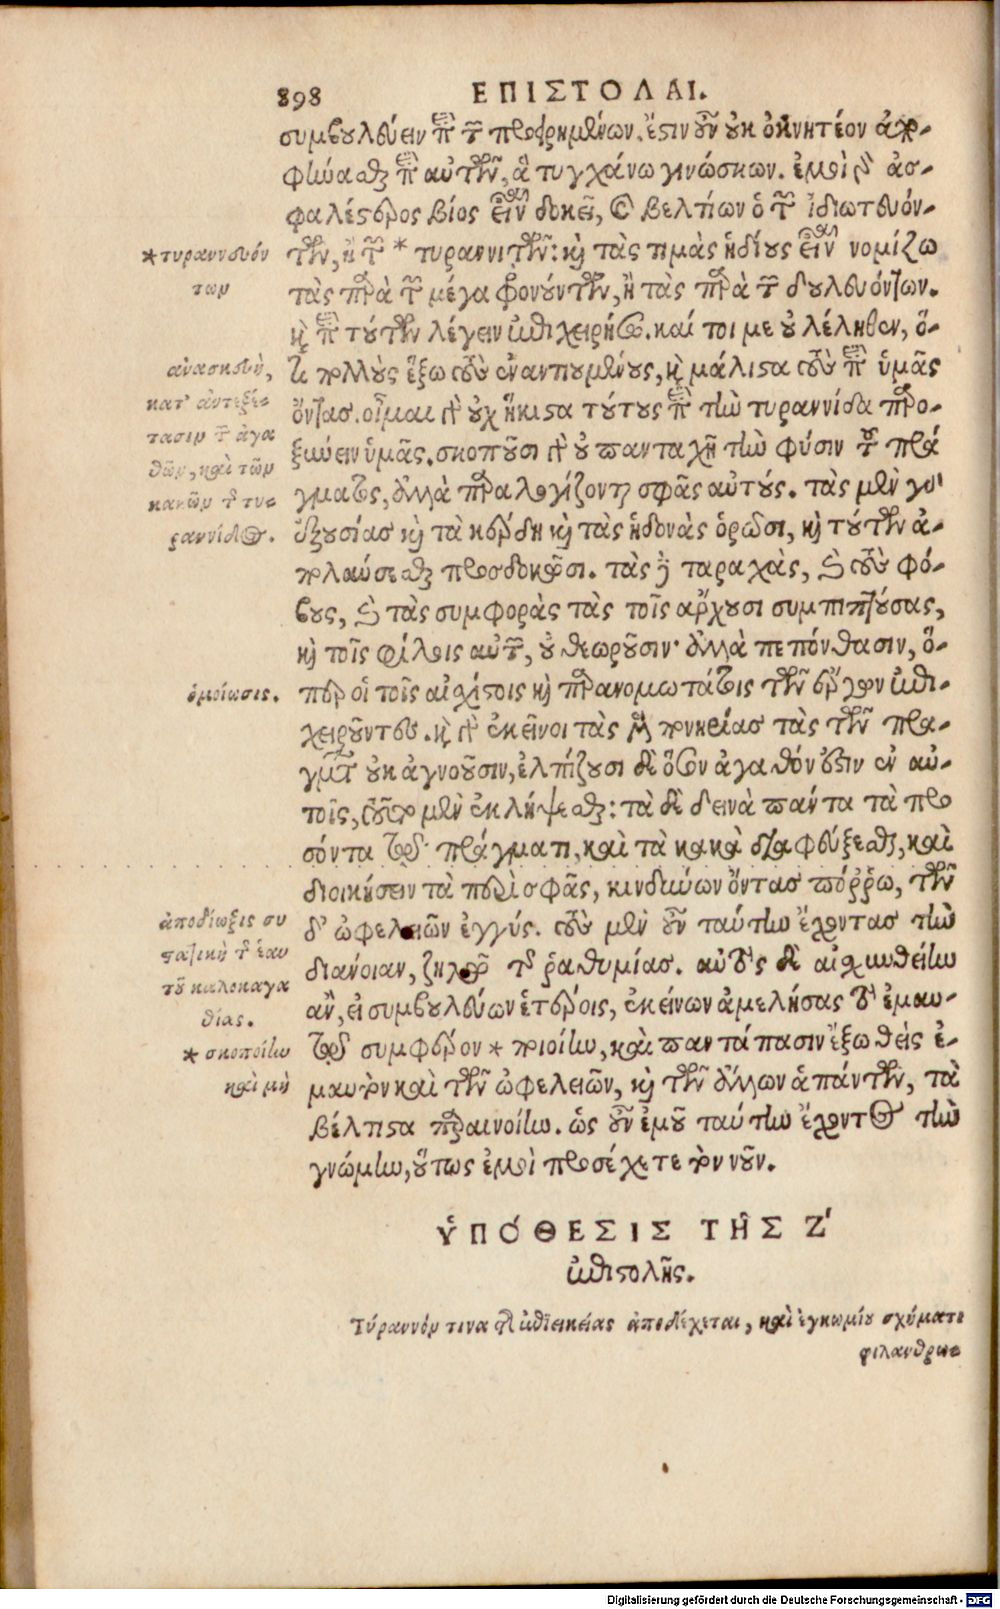 898 ΕΠΙΣΤΟΛΑΙ.
συμβουλεύειν περὶ τῶν προειρημένων. ἔστιν οὖν οὐκ ὀκνητέον ἀπο-
φήνασθαι περὶ αὐτῶν, ἃ τυγχάνω γινώσκων. ἐμοὶ γὰρ ἀσ-
φαλέστερος βίος εἶναι δοκεῖ, καὶ βελτίων ὁ τῶν ἰδιωτευόν-
των, ἢ τῶν * τυραννιτῶν: καὶ τὰς τιμὰς ἡδίους εἶναι νομίζω
*τυραννευόν
των
τὰς παρὰ τῶν μέγα φρονούντων, ἢ τὰς παρὰ τῶν δουλευόντων.
καὶ περὶ τούτων λέγειν ἐπιχειρήσω. καί τοι με οὐ λέληθεν, ὅ-
τι πολλοὺς ἕξω τοὺς ἐναντιουμένους, καὶ μάλιστα τοὺς περὶ ὑμᾶς
ὄντας. οἶμαι γὰρ οὐχ ἥκιστα τούτους περὶ τὴν τυραννίδα παρο-
ξύνειν ὑμᾶς. σκοποῦσι γὰρ οὐ πανταχῇ τὴν φύσιν τοῦ πρά
γματος, ἀλλὰ παραλογίζονται σφᾶς αὐτούς. τὰς μὲν γὰρ
ἀνασκευὴ,
κατ' ἀντεξέ-
τασιν τῶν ἀγα
θῶν, καὶ τῶν
κακῶν τῆς τυ-
ραννίδος.
ἐξουσίας καὶ τὰ κέρδη καὶ τὰς ἡδονὰς ὁρῶσι, καὶ τούτων ἀ-
πολαύσεσθαι προσδοκῶσι. τὰς δὲ ταραχὰς, καὶ τοὺς φό-
βους, καὶ τὰς συμφορὰς τὰς τοῖς ἄρχουσι συμπιπτούσας,
καὶ τοῖς φίλοις αὐτῶν, οὐ θεωροῦσιν· ἀλλὰ πεπόνθασιν, ὅ-
περ οἱ τοῖς αἰσχίστοις καὶ παρανομωτάτοις τῶν ἔργων ἐπι-
ὁμοίωσις.
χειροῦντες. καὶ γὰρ ἐκεῖνοι τὰς μὲν πονηρίας τὰς τῶν πρα-
γμάτων οὐκ ἀγνοοῦσιν, ἐλπίζουσι δὲ ὅσον ἀγαθόν ἐστιν ἐν αὐ-
τοῖς, τοῦτο μὲν ἐκλήψεσθαι: τὰ δὲ δεινὰ πάντα τὰ προ
σόντα τῷ πράγματι, καὶ τὰ κακὰ διαφεύξεσθαι, καὶ
διοικήσειν τὰ περὶ σφᾶς, κινδύνων ὄντας πόρρω, τῶν
δ' ὠφελειῶν ἐγγύς. τοὺς μὲν οὖν ταύτην ἔχοντας τὴν
διάνοιαν, ζηλῶ τῆς ῥαθυμίας. αὐτὸς δὲ αἰσχυνθείην
ἂν, εἰ συμβουλεύων ἑτέροις, ἐκείνων ἀμελήσας τὸ ἐμαυ-
τῷ συμφέρον * ποιοίην, καὶ παντάπασιν ἔξω θεὶς ἐ-
ἀποδίωξις συ
στατικὴ τῆς ἑαυ
τοῦ καλοκαγα
θίας.
* σκοποίην
καὶ μὴ
μαυτὸν καὶ τῶν ὠφελειῶν, καὶ τῶν ἄλλων ἁπάντων, τὰ
βέλτιστα παραινοίην. ὡς οὖν ἐμοῦ ταύτην ἔχοντος τὴν
γνώμην, οὕτως ἐμοὶ προσέχετε τὸν νοῦν.
ὙΠΌΘΕΣΙΣ ΤΗ͂Σ Ζ'
ἐπιστολῆς.
Τύραννόν τινα τῆς ἐπιεικείας ἀποδέχεται, καὶ ἐγκωμίου σχήματι
φιλανθρω-
Digitalisierung gefördert durch die Deutsche Forschungsgemeinschaft - DFG